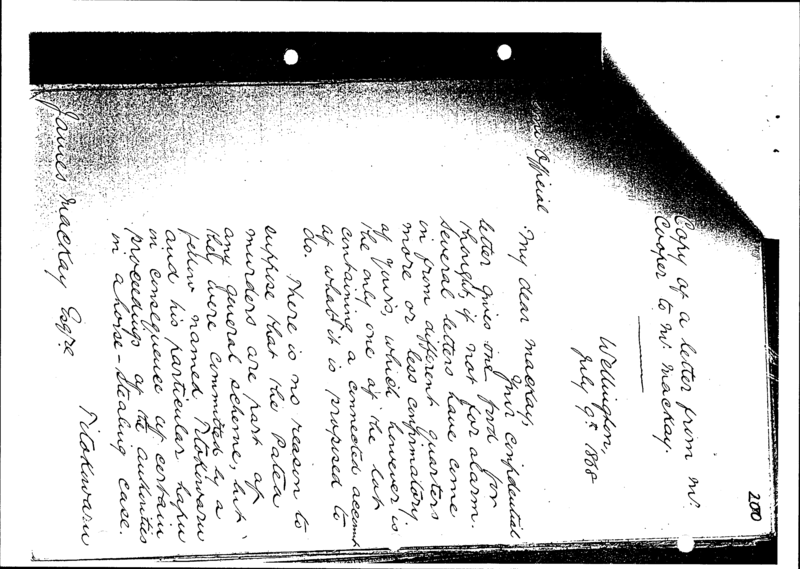 200
Copy of a letter from Mr.
Cooper to Mr. Mackay.
Wellington,
July 9th 1868
Official
My dear Mackay,
Your Confidential
letter gives me food for
thought, if not for alarm.
Several letters have come
in from different quarters
more or less confirmatory
of yours, which however is
the only one of the lot
containing a connected account
of what it is proposed to
do.
There is no reason to
suppose that the Patea
murders are part of
any general scheme, but
that were committed by a
fellow named Titokowaru
and his particular hapu
in consequence of certain
proceedings of the authorities
in a horse-stealing case.
James Mackay Esqre
Titokowaru